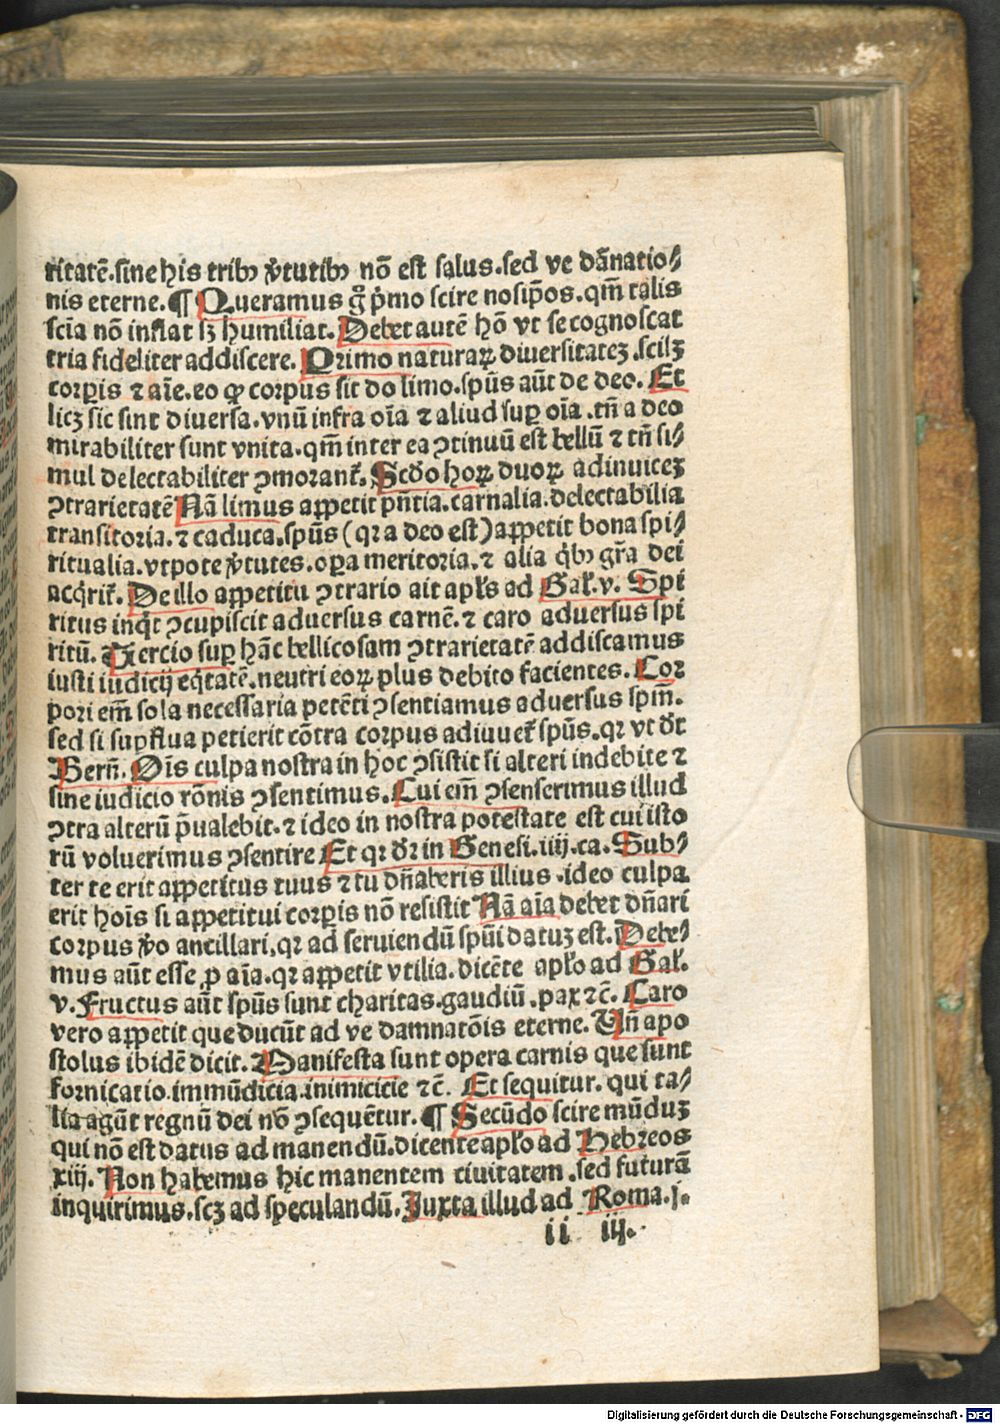 ritatē.sine his tribꝫ v̓tutibꝫ nō est salus.sed ve dānatio⸗
nis eterne.¶ Queramus g̊ p̓mo scire nosip̄os.qm̄ talis
scia nō inflat sꝫ humiliat.Debet autē hō vt se cognoscat
tria fideliter addiscere. Primo naturaꝝ diuersitateꝫ.scilꝫ
corꝑis ⁊ aīe.eo ꝙ corpus sit do limo.spūs aūt de deo. Et
licꝫ sic sint diuersa.vnū infra oīa ⁊ aliud suꝑ oīa.tn̄ a deo
mirabiliter sunt vnita.qm̄ inter ea ꝯtinuū est bellū ⁊ tn̄ si⸗
mul delectabiliter ꝯmorant̉.Scd̓o hoꝝ duoꝝ adinuiceꝫ
ꝯtrarietatē Nā limus appetit pn̄tia.carnalia.delectabilia
transitoria.⁊ caduca.spūs (qꝛ a deo est) appetit bona spi⸗
ritualia.vtpote v̓tutes.oꝑa meritoria.⁊ alia q̓bꝫ gr̄a dei
acq̓rit̉. De illo appetitu ꝯtrario ait apl̓s ad Gal̓.v. Spi
ritus inq̓t ꝯcupiscit aduersus carnē.⁊ caro aduersus spi
ritū. Tercio suꝑ hāc bellicosam ꝯtrarietatē addiscamus
iusti iudicij eq̓tatē.neutri eoꝝ plus debito facientes. Cor
pori em̄ sola necessaria petēti ꝯsentiamus aduersus spm̄.
sed si suꝑflua petierit cōtra corpus adiuuet̉ spūs.qꝛ vt d̓t
Bern̄. Oīs culpa nostra in hoc ꝯsistit si alteri indebite ⁊
sine iudicio rōnis ꝯsentimus.Cui em̄ ꝯsenserimus illud
ꝯtra alterū p̄ualebit.⁊ ideo in nostra potestate est cui isto
rū voluerimus ꝯsentire Et qꝛ d̓r in Genesi.iiij.ca.Sub⸗
ter te erit appetitus tuus ⁊ tu dn̄aberis illius .ideo culpa
erit hoīs si appetitui corꝑis nō resistit Nā aīa debet dn̄ari
corpus v̓o ancillari,qꝛ ad seruiendū spūi datuꝫ est. Debe⸗
mus aūt esse ꝓ aīa.qꝛ appetit vtilia.dicēte apl̓o ad Gal̓.
v.Fructus aūt spūs sunt charitas.gaudiū.pax ⁊c̄. Caro
vero appetit que ducūt ad ve damnatōis eterne.Vn̄ apo
stolus ibidē dicit. Manifesta sunt opera carnis que sunt
fornicatio.immūdicia.inimicicie ⁊c̄. Et sequitur.qui ta⸗
lia agūt regnū dei nō ꝯsequētur.¶ Secūdo scire mūduꝫ
qui nō est datus ad manendū.dicente apl̓o ad Hebreos
xiij. Non habemus hic manentem ciuitatem.sed futurā
inquirimus.scꝫ ad speculandū. Juxta illud ad Roma.j.
ii iij.
Digitalisierung gefördert durch die Deutsche Forschungsgemeinschaft - DFG